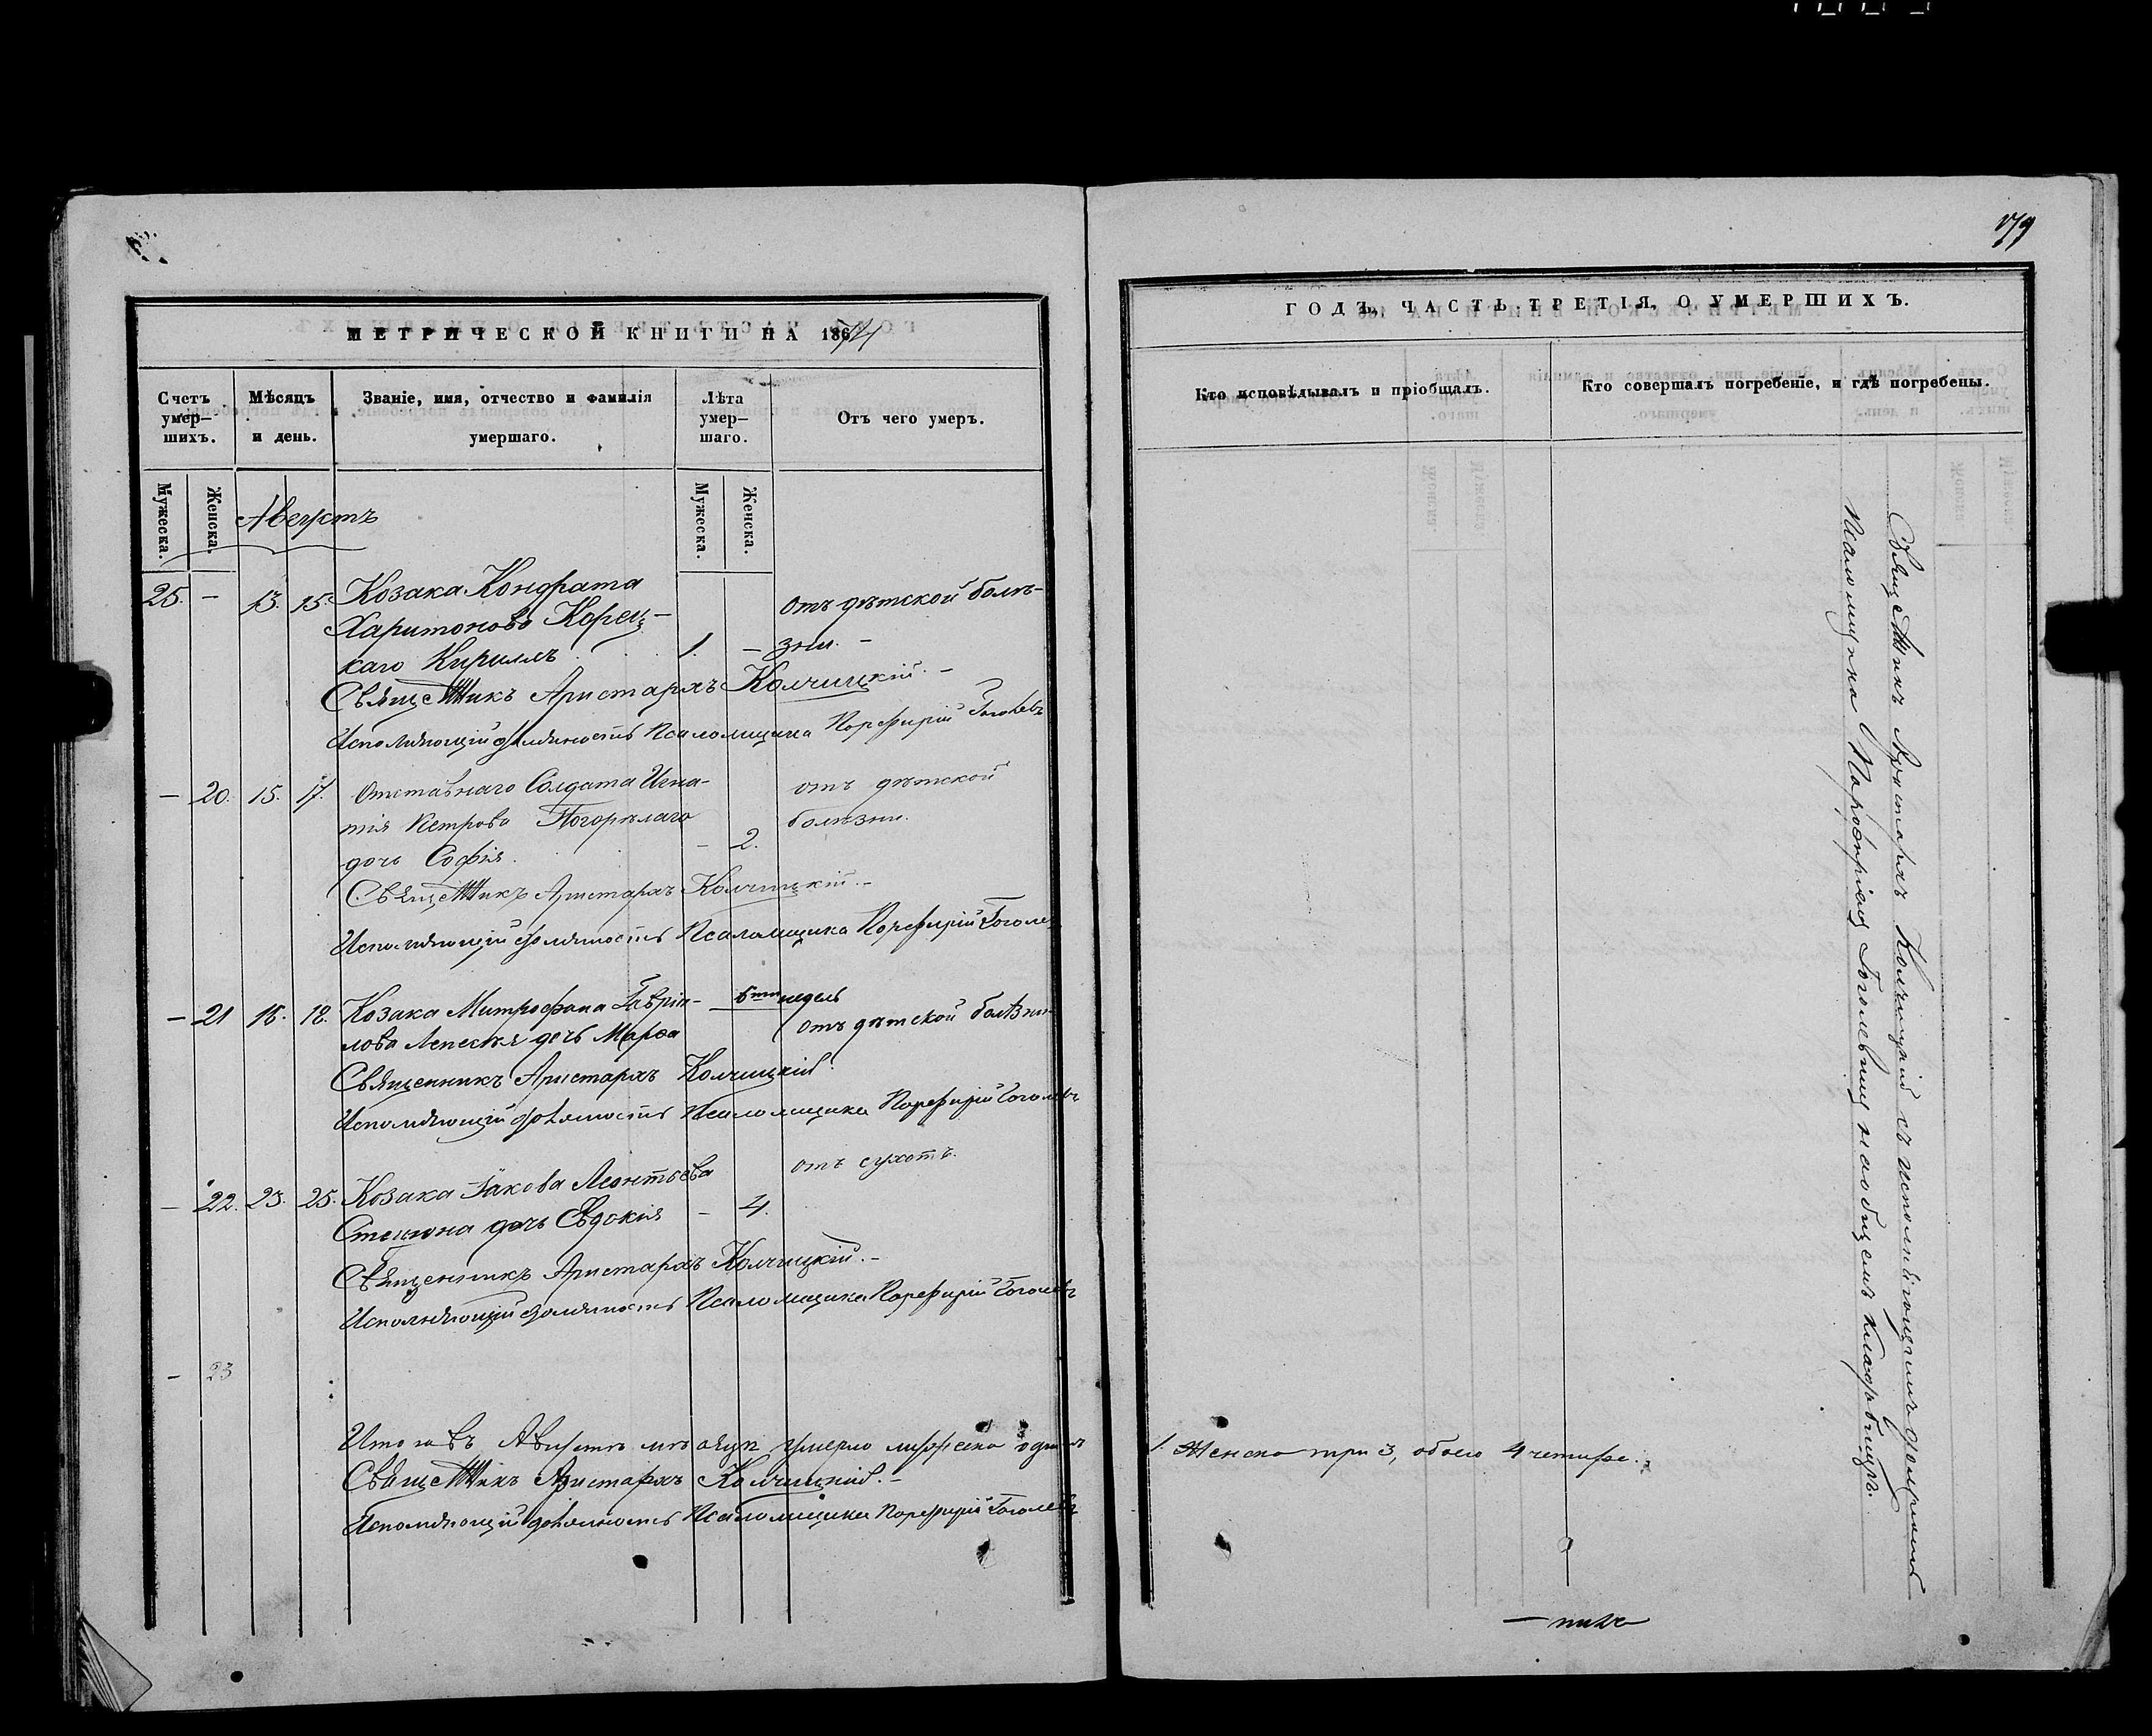 179
МЕТРИЧЕСКОЙ КНИГИ НА 1874
ГОДЪ, ЧАСТЬ ТРЕТІЯ, О УМЕРШИХЪ.
Счетъ умер-шихъ.
Мѣсяцъ и день.
Званіе, имя, отчество и фамилія умершаго.
Лѣта умер-шаго.
Отъ чего умеръ.
Кто исповѣдывалъ и пріобщалъ.
Кто совершалъ погребеніе, и гдѣ погребены.
Мужеска.
Женска.
Мужеска.
Женска.
Августъ
25. – 13. 15. Козака Кондрата
Харитонова Корец-
каго Кириллъ 1. –
отъ дѣтской болѣ-
зни. –
Священникъ Аристархъ Колчицкій. –
Исполняющій должность Псаломщика Порфирій Гоголевъ
– 20. 15. 17. Отставнаго Солдата Игна-
тія Петрова Погорѣлаго
дочь Софія. – 2.
отъ дѣтской
болѣзни.
Священникъ Аристархъ Колчицкій. –
Исполняющій должность Псаломщика Порфирій Гоголев
– 21 16. 18. Козака Митрофана Гавріи-
лова дочь Марѳа
недель
отъ дѣтской болѣзни
Священникъ Аристархъ Колчицкій.
Исполняющій должность Псаломщика Порфирій Гоголевъ
– 22. 23. 25. Козака Іакова Леонтьева
дочь Евдокія – 4.
отъ сухотъ.
Священникъ Аристархъ Колчицкій. –
Исполняющій должность Псаломщика Порфирій Гоголевъ
– 23
Итого въ Августѣ мѣсяцѣ умерло мужеска одинъ
1. Женска три 3, обоего 4 четыре.
Священникъ Аристархъ Колчицкій. –
Исполняющій должность Псаломщика Порфирій Гоголевъ
Священникъ Аристархъ Колчицкій съ исполняющимъ должность
Псаломщика Порфиріемъ Гоголевымъ на общемъ кладбищѣ.